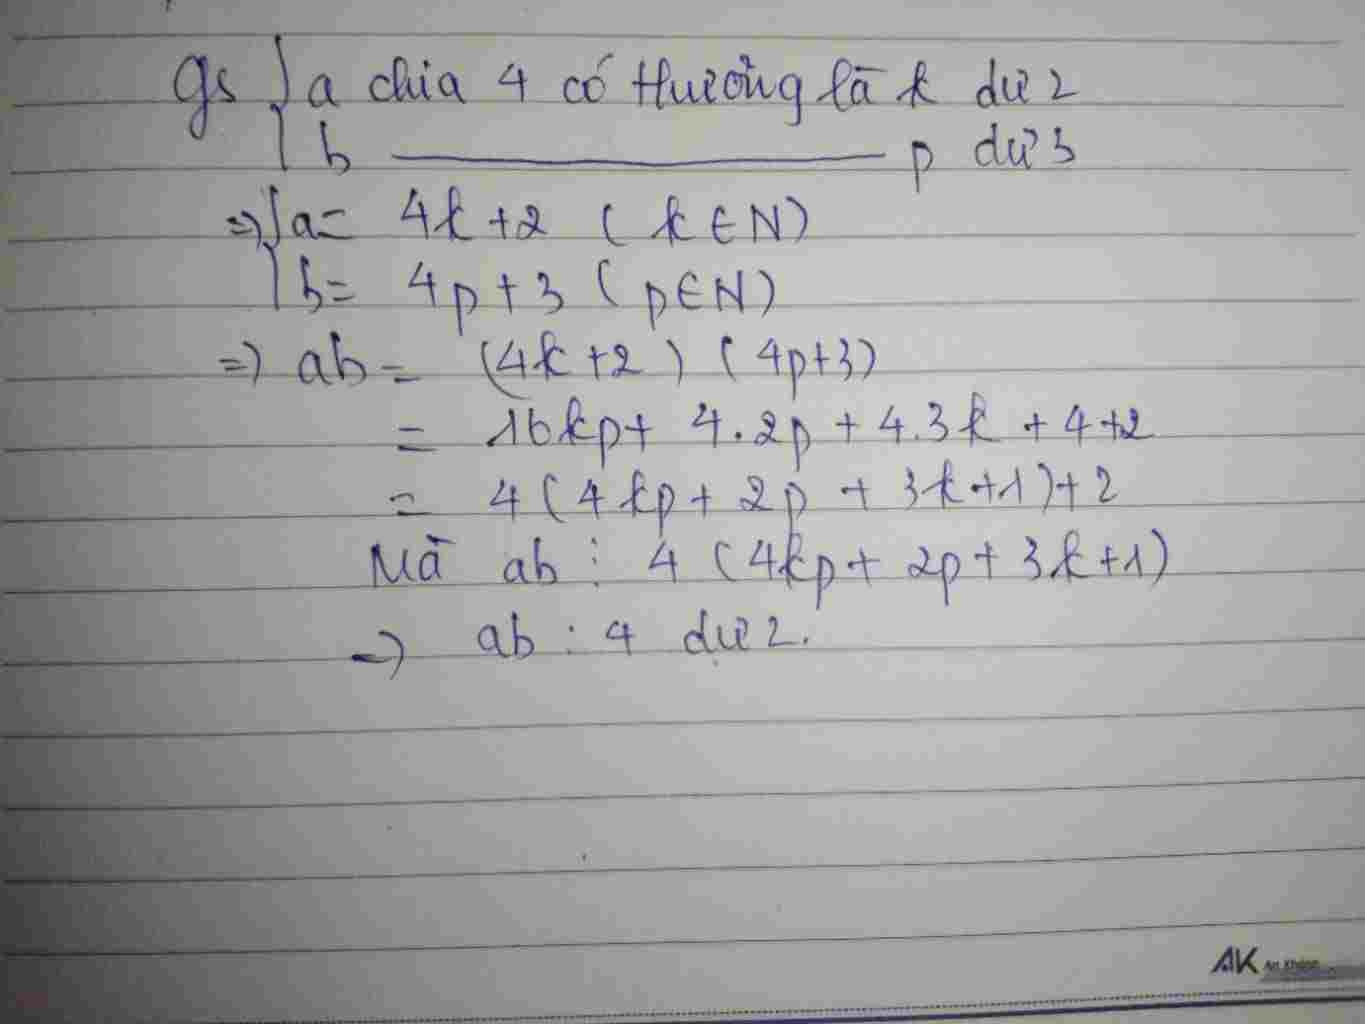 gs { a chia 4 có thương là k dư 2
{ b ———————— p dư 3
=> { a = 4k + 2 ( k ∈ N )
{ b = 4p + 3 ( p ∈ N )
=> ab = (4k + 2 ) ( 4p + 3)
= 16kp + 4.2p + 4.3k + 4 + 2
= 4 ( 4kp + 2p + 3k + 1) + 2
Mà ab ⋮ 4 ( 4kp + 2p + 3k + 1)
=> ab : 4 dư 2.
AK An Khánh